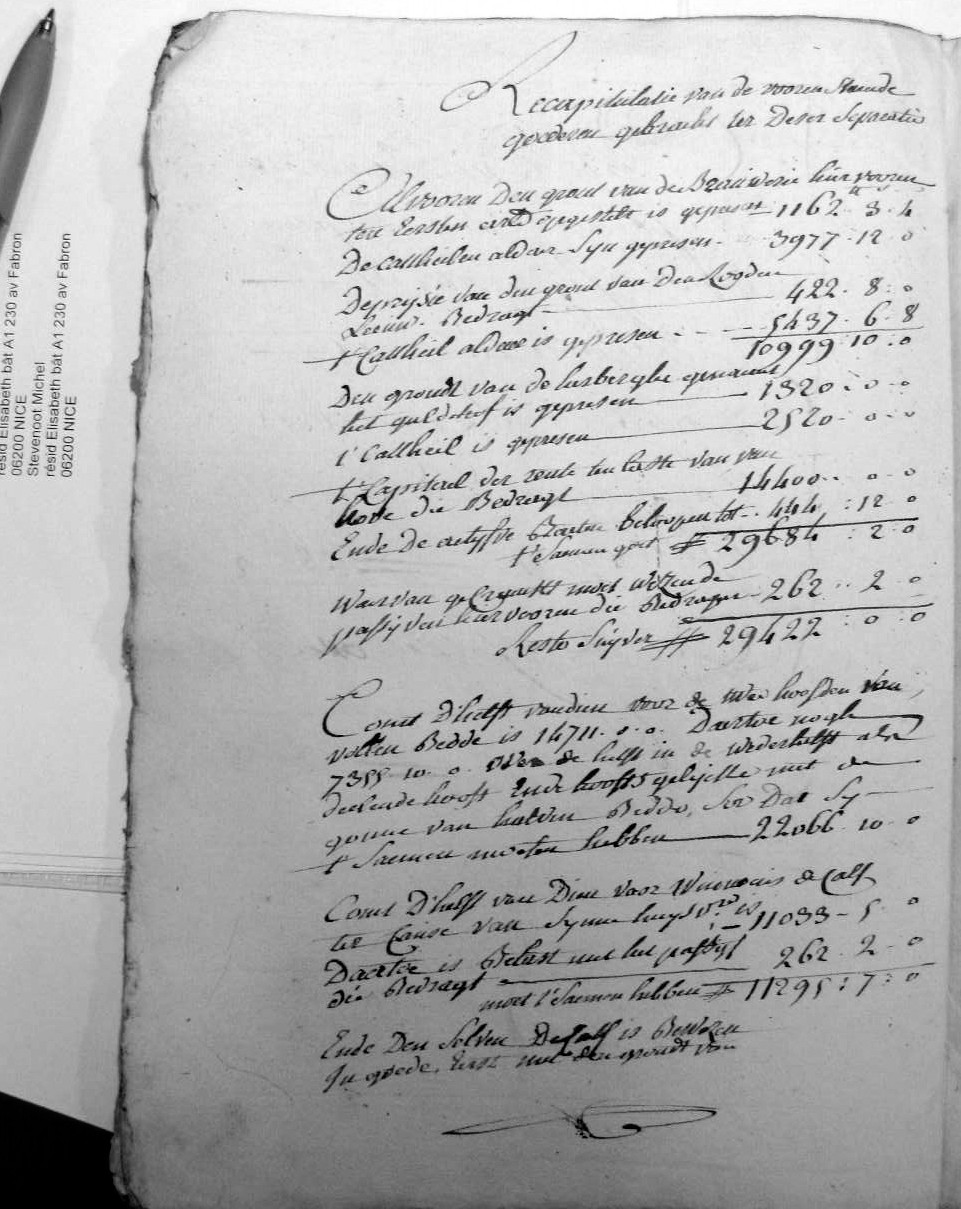 Recapitulatie van de vooren staende
goederen gebracht ter deser separatie
Alvooren den gront van de Brauwerie hier vooren
ten eersten opgestelt is gepresen 1162 - 3 - 4
De catheilen aldaer syn gepresen 3977 - 12 - 0
De prysie van den gront van den Rooden
Leeuw Bedragt 422 - 8 - 0
t'Catheil aldaer is gepresen 5437 - 6 - 8
10999 : 10 : 0
Den grondt van de herberghe genaemt
het guldehof is gepresen 1320 : 0 - 0
t'Catheil is gepresen 2520 - 0 - 0
t'Capitael der rente ten laste van van
hove die Bedragt 14400 - 0 - 0
Ende de actifve Baeten beloopen tot 444 : 12 - 0
t'samen goet 29684 : 2 : 0
Waer van gecregt moet worden de
passiven hier vooren die Bedragen 262 - 2 - 0
Reste suyver 29422 : 0 : 0
Comt d'helft van dien voor de twee hoofden van
vollen Bedde is 14711 - 0 - 0. Daertoe nogh
7355 - 10 - 0 over de helft in de wederhelft als
deelende hooft ende hoofts gelycke met de
gonne van halven Bedde, soo dat sy
t'saemen moeten hebben 22066 - 10 - 0
Comt d'helft van dien voor de Calf
ter cause van syne huysvre. is 11033 - 5 - 0
Daertoe is belast met het passyf
die Bedragt 262 - 2 - 0
moet t'saemen hebben 11295 : 7 : 0
Ende den selven de Calf is Bewesen
In goede, eerst met den grondt van
résid Elisabeth bât A1 230 av Fabron
06200 NICE
Stevenoot Michel
résid Elisabeth bât A1 230 av Fabron
06200 NICE